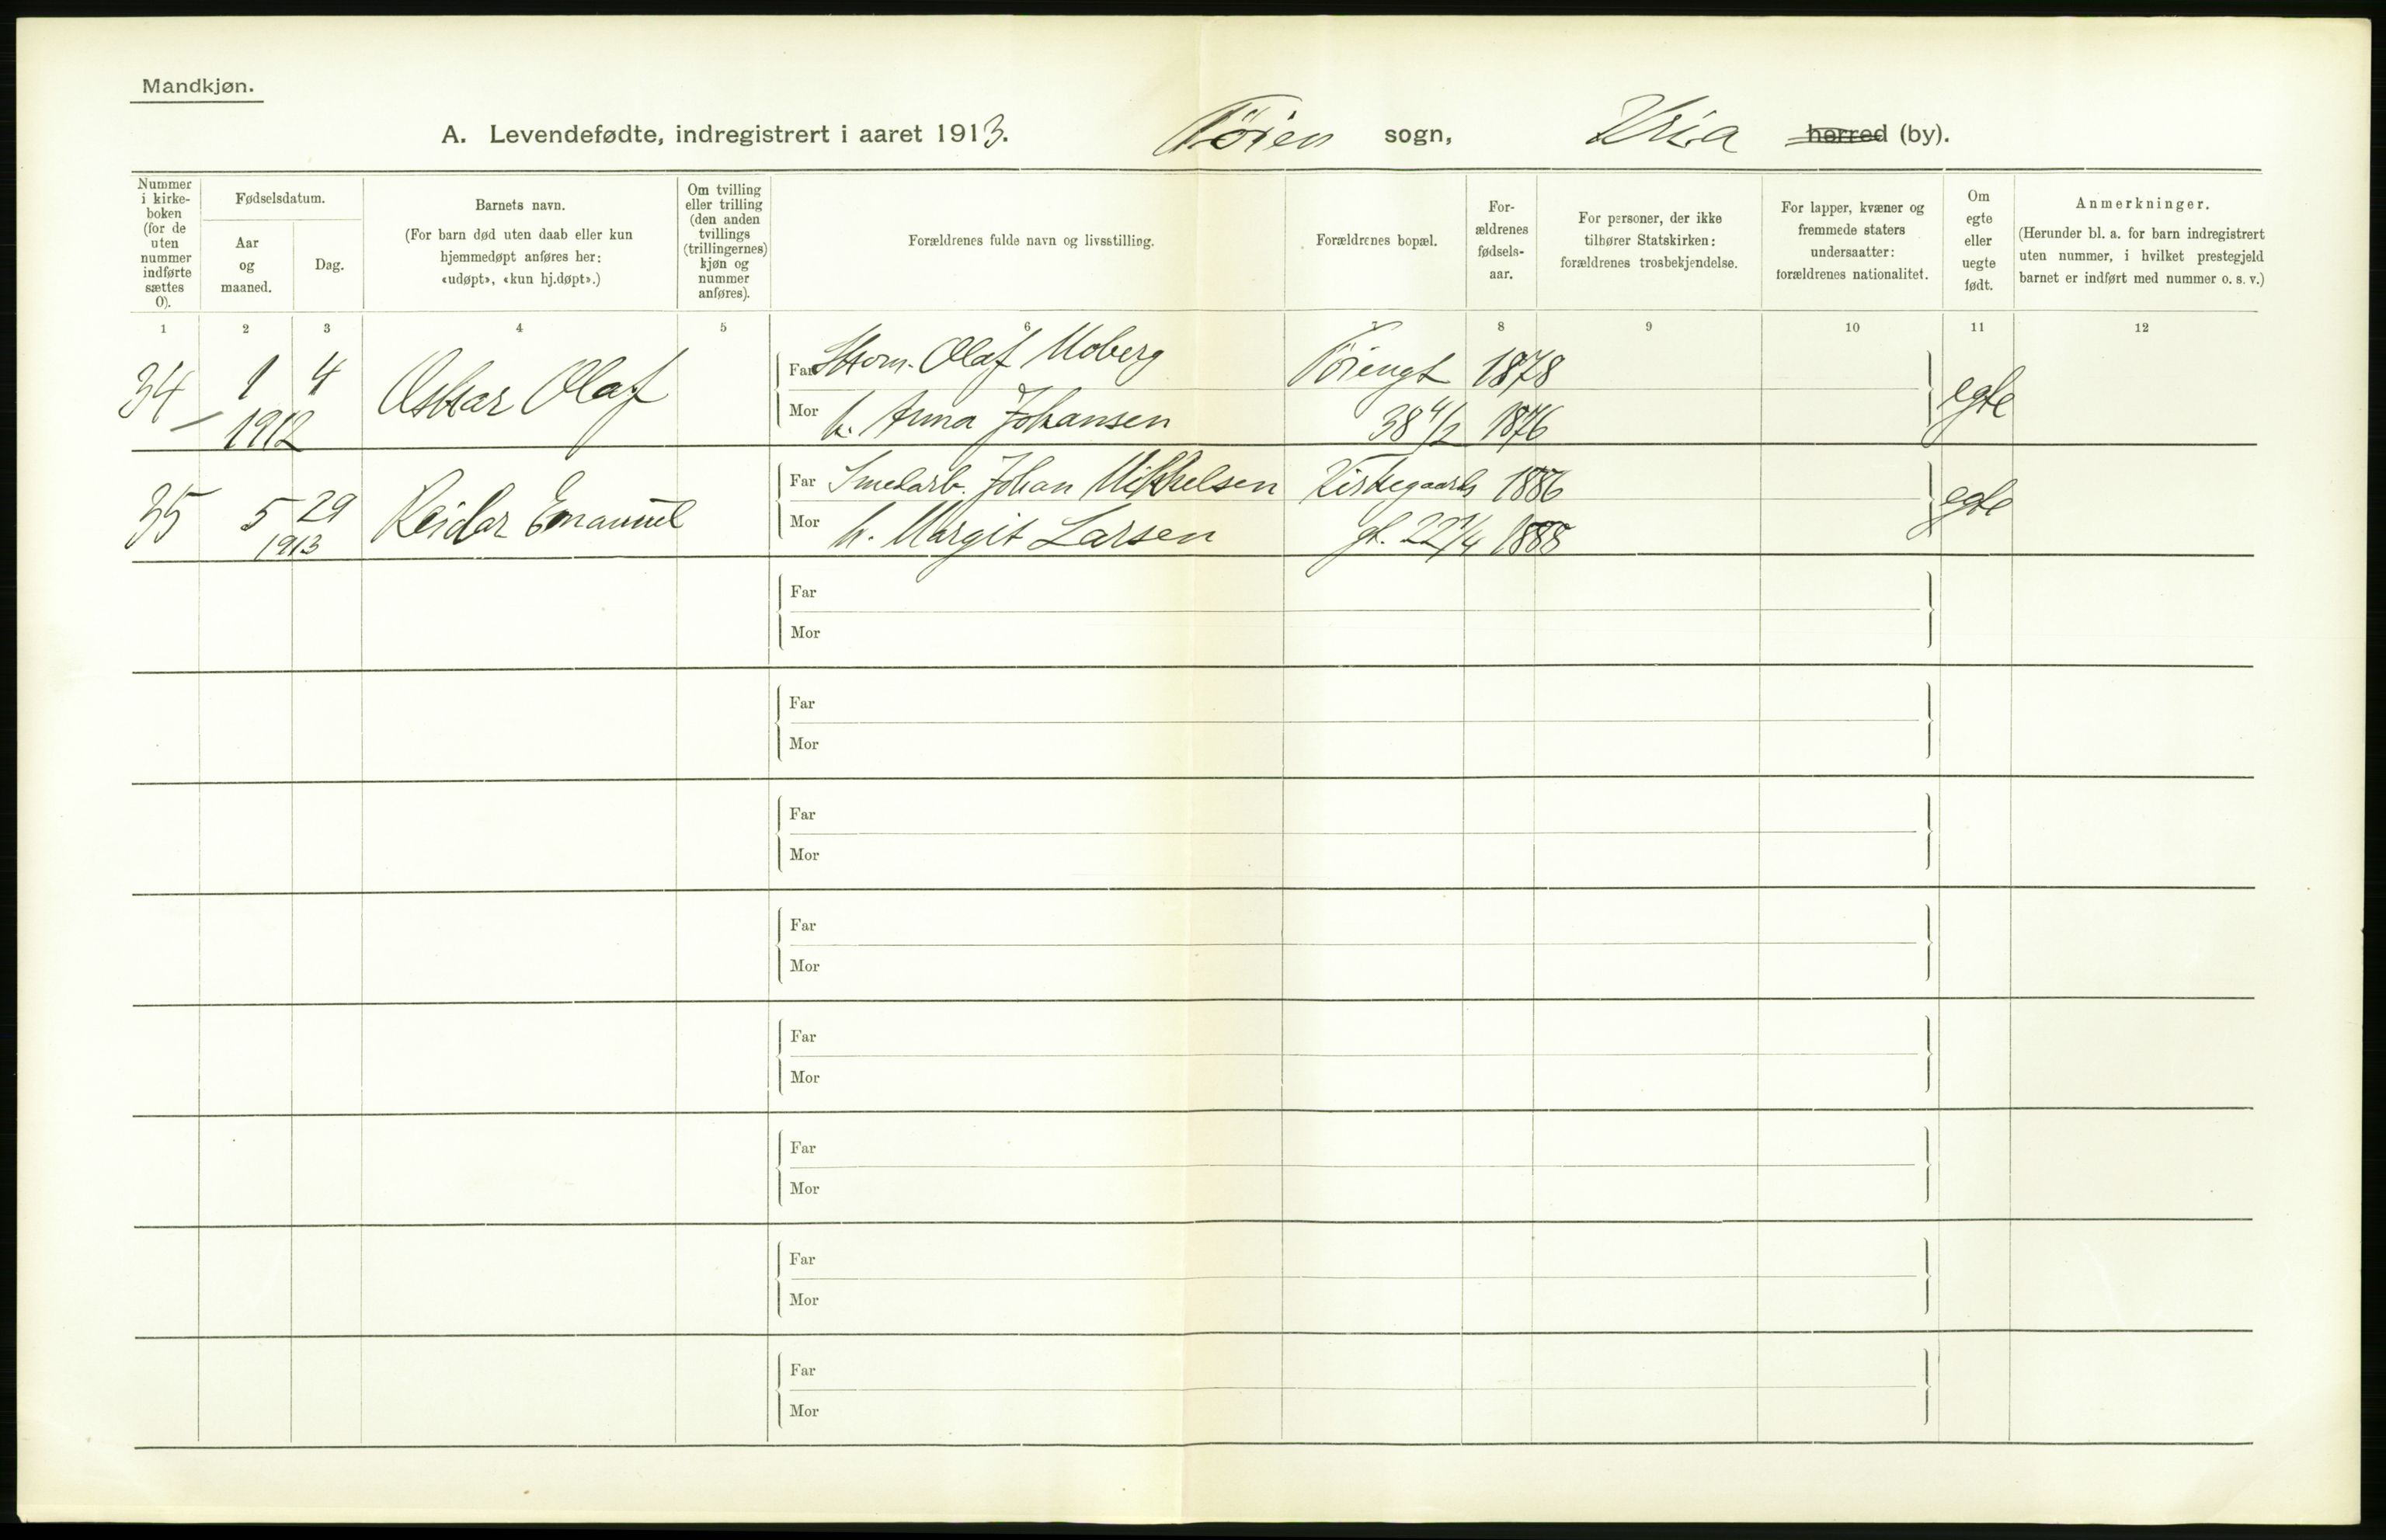 Mandkjøn.
A. Levendefødte, indregistrert i aaret 1913. Tøien sogn, Kria herred (by).
Nummer i kirke- boken (for de uten nummer indførte sættes 0).
Fødselsdatum.
Aar og maaned.
Dag.
Barnets navn.
(For barn død uten daab eller kun hjemmedøpt anføres her: «udøpt», «kun hj.døpt».)
Om tvilling eller trilling (den anden tvillings (trillingernes) kjøn og nummer anføres).
Forældrenes fulde navn og livsstilling.
Forældrenes bopæl.
For- ældrenes fødsels- aar.
For personer, der ikke tilhører Statskirken: forældrenes trosbekjendelse.
For lapper, kvæner og fremmede staters undersaatter: forældrenes nationalitet.
Om egte eller uegte født.
Anmerkninger.
(Herunder bl. a. for barn indregistrert uten nummer, i hvilket prestegjeld barnet er indført med nummer o. s. v.)
1 2 3 4 5 6 7 8 9 10 11 12
34 1 4 Oskar Olaf Far Olaf Moberg Tøiengt 1878 egte
1912 Mor h. Anna Johansen 38 4/2 1876
35 5 29 Reidar Emanuel Far Smedarb. Johan Mikkelsen Kirkegaards 1886 egte
1913 Mor h. Margit Larsen gt. 22 1/4 1888
Far
Mor
Far
Mor
Far
Mor
Far
Mor
Far
Mor
Far
Mor
Far
Mor
Far
Mor